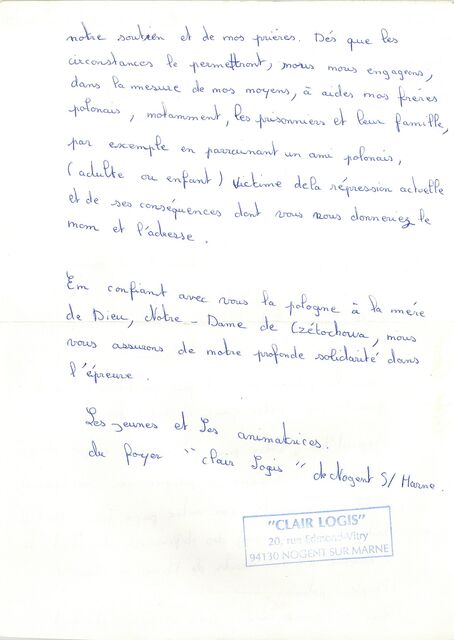 notre soutien et de nos prières. Dés que les
circonstances le permettront, nous nous engageons,
dans la mesure de nos moyens, à aides nos frères
polonais, notamment, les prisonniers et leur famille,
par exemple en parrainant un ami polonais,
(adulte ou enfant) victime de la répression actuelle
et de ses conséquences dont vous nous donneriez le
nom et l'adresse.
En confiant avec vous la pologne à la mère
de Dieu, Notre-Dame de Czétochowa, nous
vous assurons de notre profonde solidarité dans
l'épreuve.
Les jeunes et Les animatrices.
du foyer "clair Logis" de Nogent S/ Marne.
"CLAIR LOGIS"
20, rue Edmond-Vitry
94130 NOGENT SUR MARNE